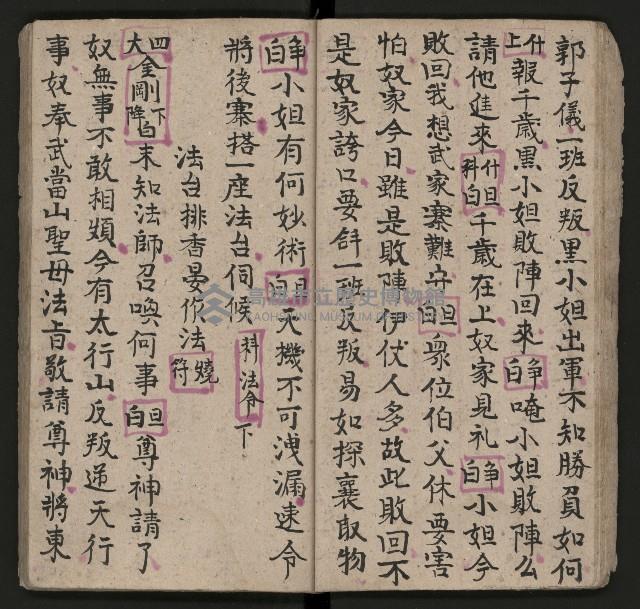 郭子儀一班反叛黑小姐出軍不知勝負如何
什上報千歲黑小姐敗陣回來爭白唵小姐敗陣么
請他進來什科旦白千歲在上奴家見礼爭白小姐今
敗回我想武家寨難守旦白衆位伯父休要害
怕奴家今日雖是敗陣伊伏人多故此敗回不
是奴家誇口要斜一班反叛易如探襄取物
爭白小姐有何妙術旦白天機不可洩漏速令
將後寨搭一座法台伺候科法令下
法台排香晏作法燒符
四大金剛下降白未知法師召喚何事旦白尊神請了
奴無事不敢相煩今有太行山反叛逆天行
事奴奉武當山聖母法旨敬請尊神將東
高雄市立歷史博物館
KAOHSIUNG MUSEUM OF HISTORY